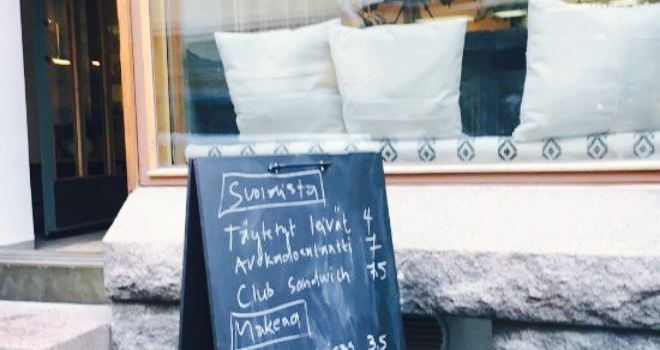 Suolaista
Täytetyt leivät 4
Avokadolohitartti 7
Club sandwich 7.5
Makeaa
3.5